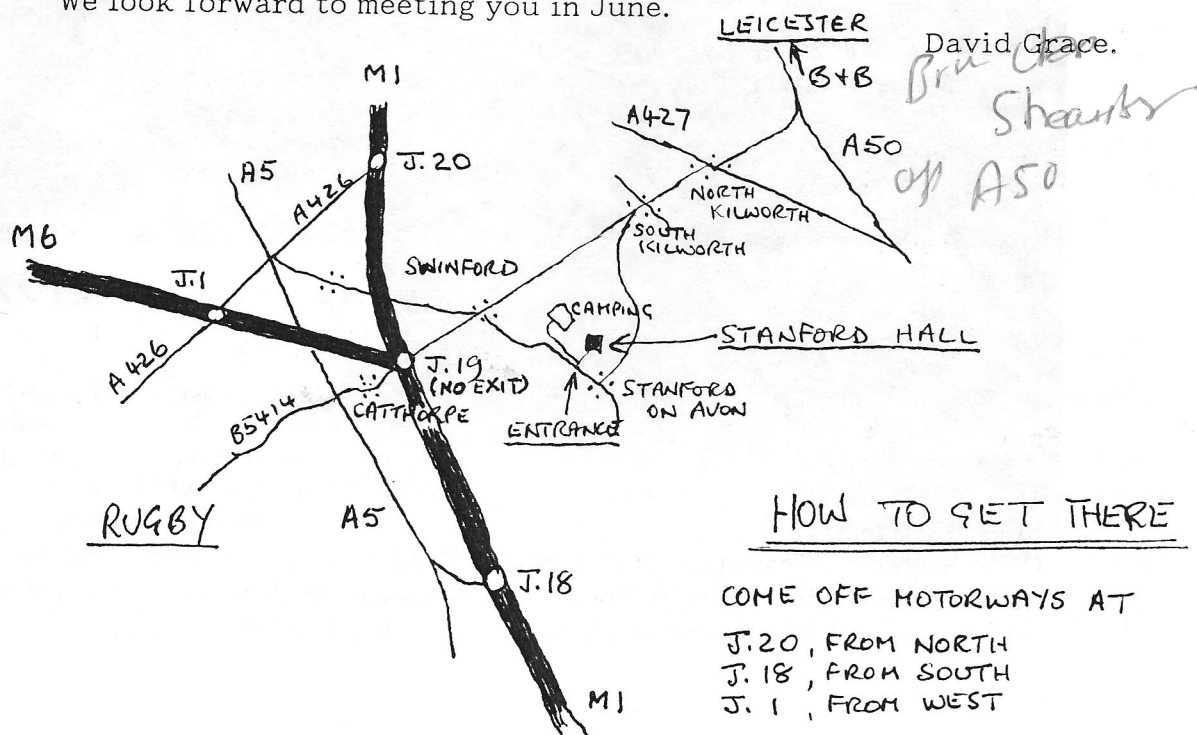 We look forward to meeting you in June.
David Grace.
LEICESTER
B+B
off A50
M1
A427
A50
A5
J.20
A426
NORTH
KILWORTH
SOUTH
KILWORTH
M6
J.1
SWINFORD
CAMPING
STANFORD HALL
A426
J.19
(NO EXIT)
STANFORD
ON AVON
CATTHORPE
B5414
ENTRANCE
RUGBY
A5
J.18
M1
HOW TO GET THERE
COME OFF MOTORWAYS AT
J.20, FROM NORTH
J.18, FROM SOUTH
J.1, FROM WEST